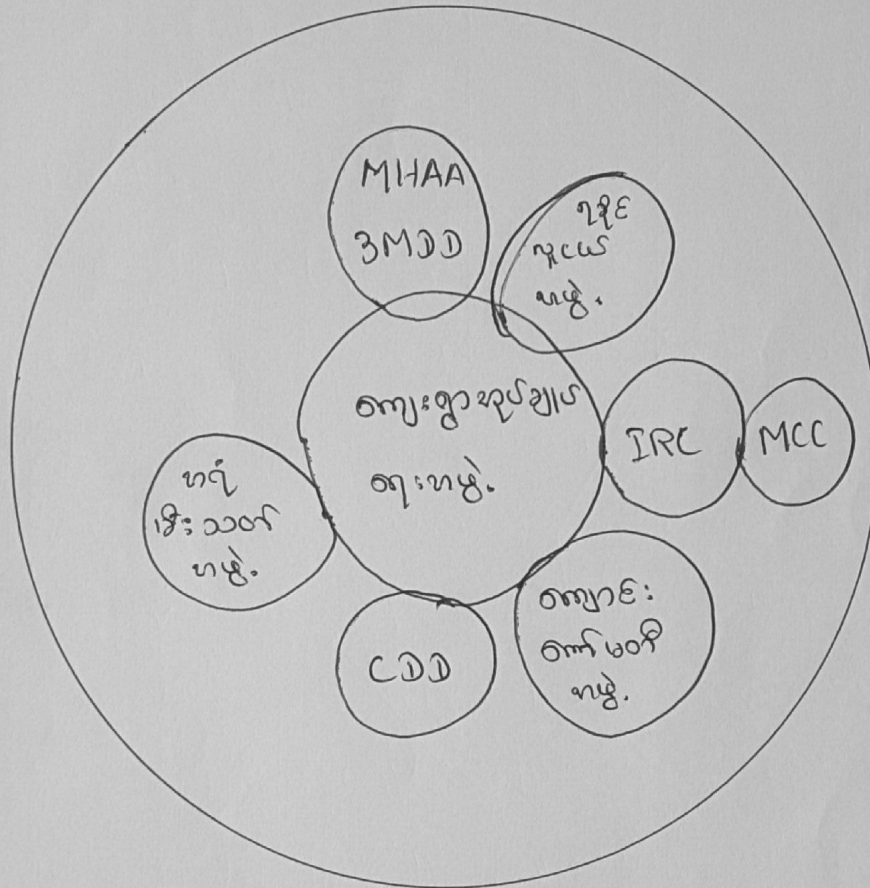 MHAA
3MDD
ရခိုင်
လူငယ်
အဖွဲ့
ကျေးရွာအုပ်ချုပ်
ရေးအဖွဲ့
IRC
MCC
အရံ
မီးသတ်
အဖွဲ့
CDD
ကျောင်း
ကော်မတီ
အဖွဲ့